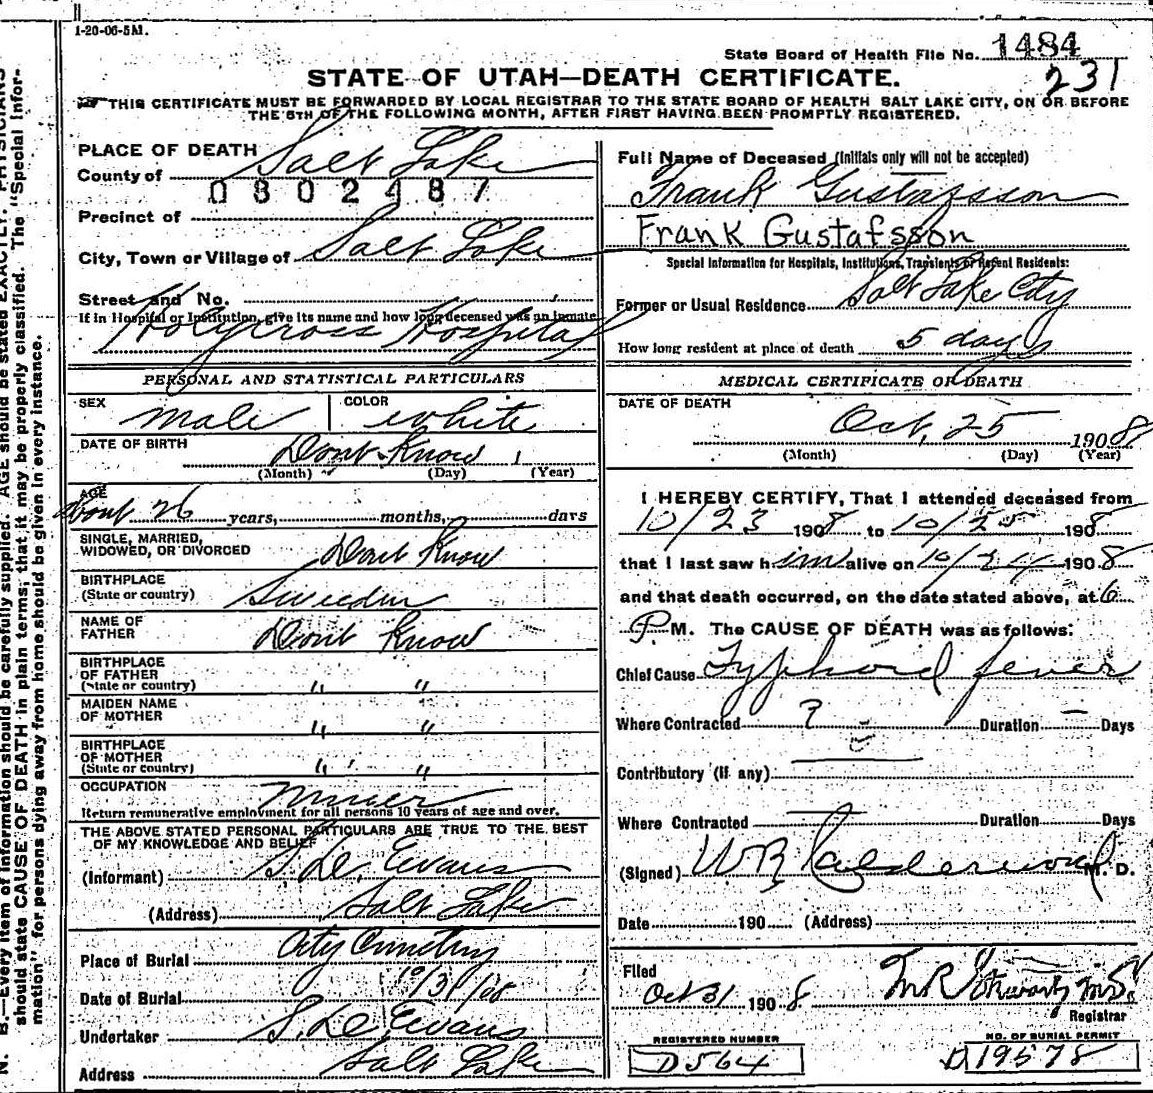 1-20-06-5M.
State Board of Health File No. 1484
231
STATE OF UTAH—DEATH CERTIFICATE.
THIS CERTIFICATE MUST BE FORWARDED BY LOCAL REGISTRAR TO THE STATE BOARD OF HEALTH SALT LAKE CITY, ON OR BEFORE
THE 5TH OF THE FOLLOWING MONTH, AFTER FIRST HAVING BEEN PROMPTLY REGISTERED.
PLACE OF DEATH
County of Salt Lake
0802487
Precinct of
City, Town or Village of Salt Lake
Street and No.
If in Hospital or Institution, give its name and how long deceased was an inmate
Holy Cross Hospital
PERSONAL AND STATISTICAL PARTICULARS
SEX male COLOR white
DATE OF BIRTH Dont Know
(Month) (Day) (Year)
AGE
About 26 years, months, days
SINGLE, MARRIED,
WIDOWED, OR DIVORCED Dont Know
BIRTHPLACE
(State or country) Sweeden
NAME OF
FATHER Dont Know
BIRTHPLACE
OF FATHER
(State or country) " "
MAIDEN NAME
OF MOTHER " "
BIRTHPLACE
OF MOTHER
(State or country) " "
OCCUPATION Miner
Return remunerative employment for all persons 10 years of age and over.
THE ABOVE STATED PERSONAL PARTICULARS ARE TRUE TO THE BEST
OF MY KNOWLEDGE AND BELIEF
(Informant) S. D. Evans
(Address) Salt Lake
Place of Burial City Cemetery
Date of Burial 10/31/08
Undertaker S. D. Evans
Address Salt Lake
Full Name of Deceased (Initials only will not be accepted)
Frank Gustafsson
Frank Gustafsson
Special Information for Hospitals, Institutions, Transients or Recent Residents:
Former or Usual Residence Salt Lake City
How long resident at place of death 5 days
MEDICAL CERTIFICATE OF DEATH
DATE OF DEATH
Oct. 25 1908
(Month) (Day) (Year)
I HEREBY CERTIFY, That I attended deceased from
10/23 1908 to 10/25 1908
that I last saw him alive on 10/24 1908
and that death occurred, on the date stated above, at 6
P. M. The CAUSE OF DEATH was as follows:
Chief Cause Typhoid fever
Where Contracted ? Duration — Days
Contributory (if any)
Where Contracted Duration Days
(Signed) W R Calderwood M. D.
Date 190 (Address)
Filed
Oct 31 1908
Registrar
REGISTERED NUMBER
D564
NO. OF BURIAL PERMIT
D19578
N. B.—Every item of information should be carefully supplied. AGE should be stated EXACTLY. PHYSICIANS
should state CAUSE OF DEATH in plain terms, that it may be properly classified. The "Special Infor-
mation" for persons dying away from home should be given in every instance.